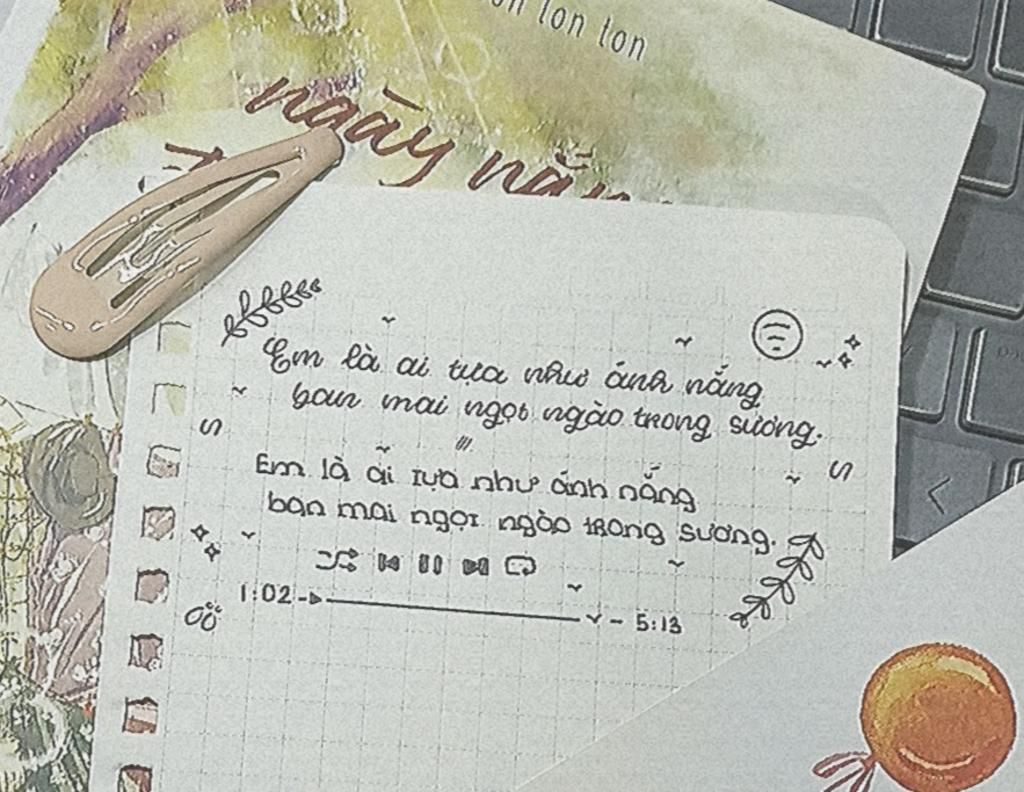 lon ton
ngày nắng
Em là ai tựa như ánh nắng
ban mai ngọt ngào trong sương.
Em là ai tựa như ánh nắng
ban mai ngọt ngào trong sương.
1:02 5:13